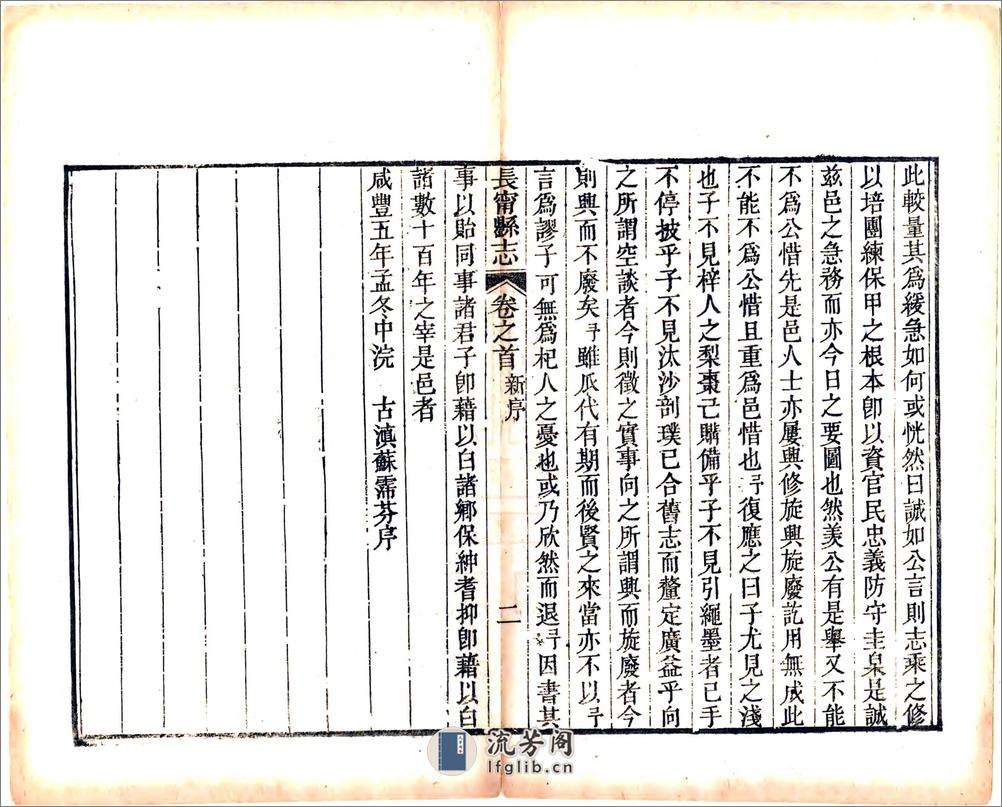 此較量其爲緩急如何或恍然曰誠如公言則志乘之修
以培團練保甲之根本卽以資官民忠義防守圭臬是誠
兹邑之急務而亦今日之要圖也然羙公有是舉又不能
不爲公惜先是邑人士亦屢興修旋興旋廢訖用無成此
不能不爲公惜且重爲邑惜也予復應之曰子尤見之淺
也子不見梓人之梨棗已購備乎子不見引繩墨者已手
不停披乎子不見汰沙剖璞已合舊志而釐定廣益乎向
之所謂空談者今則徵之實事向之所謂興而旋廢者今
則興而不廢矣予雖瓜代有期而後賢之來當亦不以予
言爲謬子可無爲杞人之憂也或乃欣然而退予因書其
長甯縣志 卷之首 新序 二
事以貽同事諸君子卽藉以白諸鄉保紳耆抑卽藉以白
諸數十百年之宰是邑者
咸豐五年孟冬中浣 古滇蘇霈芬序
流芳阁
lfglib.cn